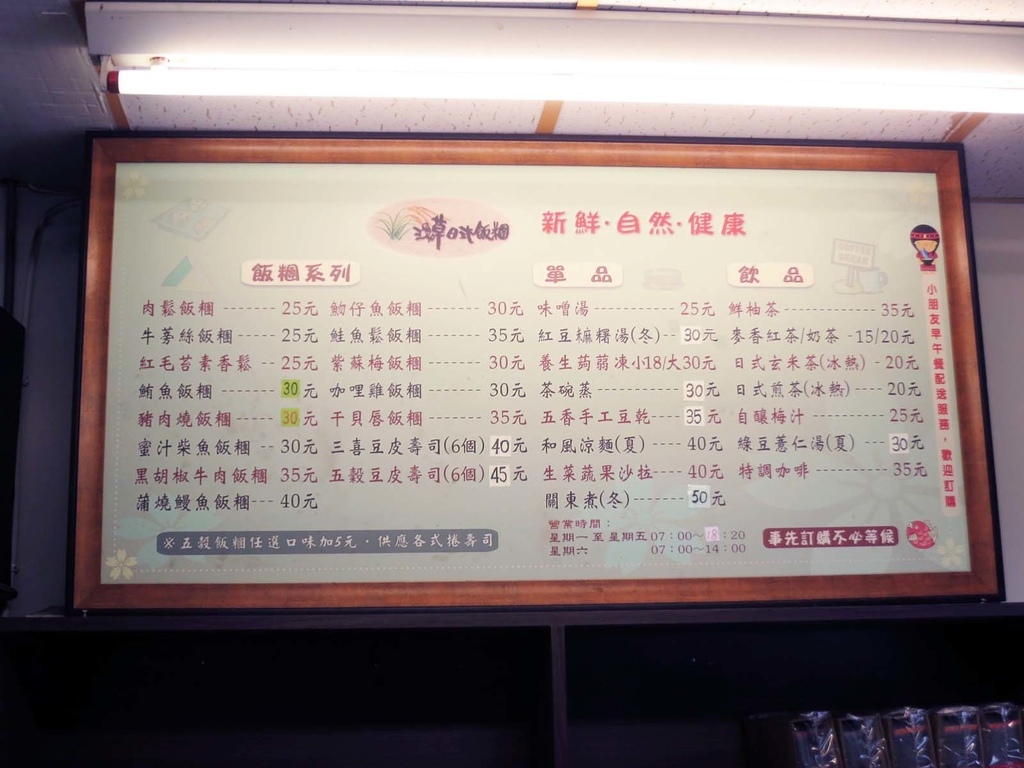 日式飯糰
新鮮·自然·健康
飯糰系列
肉鬆飯糰 -------- 25元
牛蒡絲飯糰 ------ 25元
紅毛苔素香鬆 ---- 25元
鮪魚飯糰 -------- 30元
豬肉燒飯糰 ------ 30元
蜜汁柴魚飯糰 --- 30元
黑胡椒牛肉飯糰 35元
蒲燒鰻魚飯糰--- 40元
魩仔魚飯糰 ------- 30元
鮭魚鬆飯糰 ------- 30元
紫蘇梅飯糰 ------- 30元
咖哩雞飯糰 ------- 30元
干貝唇飯糰 ------- 35元
三喜豆皮壽司(6個) 40元
五穀豆皮壽司(6個) 45元
※五穀飯糰任選口味加5元·供應各式捲壽司
單品
味噌湯 ---------- 25元
紅豆麻糬湯(冬)- 30元
養生蒟蒻凍小18/大30元
茶碗蒸 ---------- 30元
五香手工豆乾---- 35元
和風涼麵(夏) ---- 40元
生菜蔬果沙拉---- 40元
關東煮(冬)------- 50元
飲品
鮮柚茶------------- 35元
麥香紅茶/奶茶 -15/20元
日式玄米茶(冰熱) -- 20元
日式煎茶(冰熱) ---- 20元
自釀梅汁 --------- 25元
綠豆薏仁湯(夏) --- 30元
特調咖啡 ---------- 35元
營業時間：
星期一 至 星期五 07：00~18：20
星期六 07：00~14：00
事先訂購不必等候
小朋友早午餐配送服務，歡迎訂購